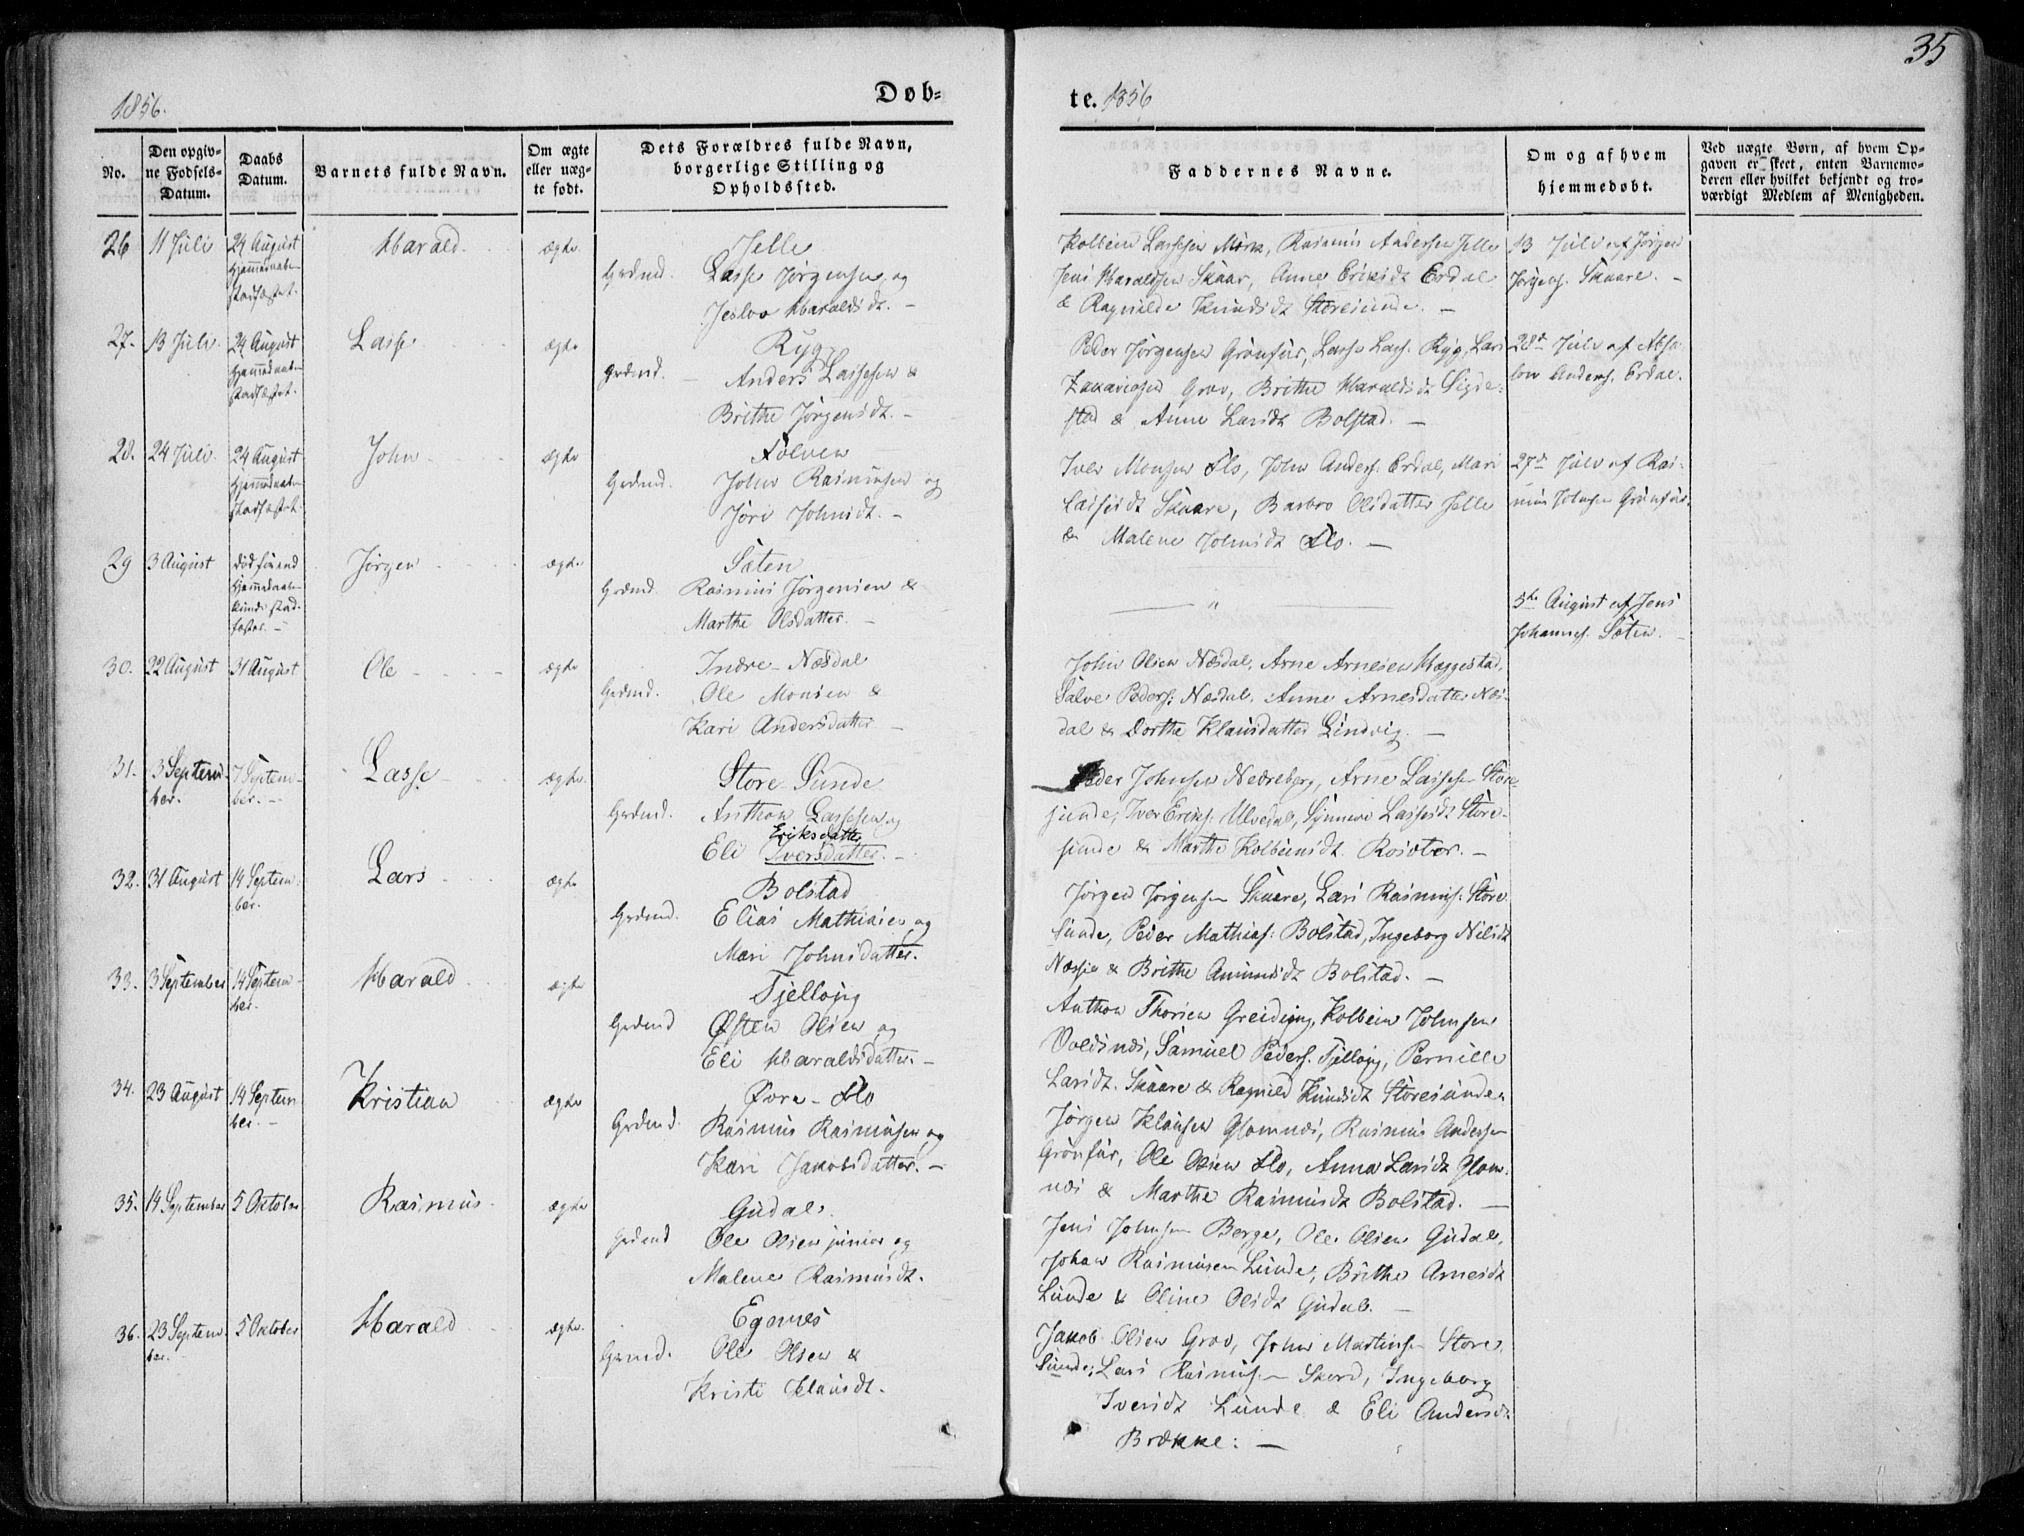 35
1856.
Døb-
te. 1856
No.
Den opgiv-
ne Fødsels-
Datum.
Daabs
Datum.
Barnets fulde Navn.
Om ægte
eller uæg-
te født.
Dets Forældres fulde Navn,
borgerlige Stilling og
Opholdssted.
Faddernes Navne.
Om og af hvem
hjemmedøbt.
Ved uægte Børn, af hvem Op-
gaven er skeet, enten Barnemo-
deren eller hvilket bekjendt og tro-
værdigt Medlem af Menigheden.
26 11 Juli 24 August Harald ægte
Hjemmedaaben
stadfæstet.
Jelle
Grdmd. Lasse Jørgensen og
Haraldsdt. -
Kolbein Lassesen Mørk, Rasmus Andersen Jelle
Jens Haraldsen Skaar, Anne Eriksdt Erdal
& Ragnilde Knudsdt Storesunde. -
13 Juli af Jørgen
Jørgens. Skaare. -
27. 13 Juli 24 August Lasse ægte
Hjemmedaaben
stadfæstet.
Ryg
Grdmd. - Anders Lassesen &
Brithe Jørgensdt. -
Peder Jørgensen Grønfur, Lasse Lass. Ryg, Lars
Zakariasen Grov, Brithe Haraldsdt Sigde-
stad & Anne Larsdt Bolstad. -
28de Juli af Absa-
lon Anders. Erdal.
28. 24 Juli 24 August John ægte
Hjemmedaaben
stadfæstet.
Folven
Grdmd. John Rasmusen og
Jori Johnsdt. -
Iver Monsen Flo, John Anders. Erdal, Mari
Lassesdt Skaare, Barbro Olsdatter Jelle
& Malene Johnsdt Flo. -
27de Juli af Ras-
mus Johnsen Grønfur.
29 3 August død førend Jørgen ægte
Hjemmedaaben
kunde stad-
fæstes. -
Sæten
Grdmd. Rasmus Jørgensen &
Marthe Olsdatter. -
— " —
5te August af Jens
Johannes. Sæten. -
30. 22 August 31 August Ole ægte
Indre-Næsdal
Grdmd. Ole Monsen &
Kari Andersdatter -
John Olsen Næsdal, Arne Arnesen Heggestad,
Salve Peders. Næsdal, Anne Arnesdatter Næs-
dal & Dorthe Klausdatter Lindvig. -
31. 3 Septem- 7 Septem- Lasse ægte
ber. ber. -
Store-Sunde
Grdmd. Anthon Lassesen og
Eriksdatter
Eli Iversdatter. -
Peder Johnsen Nedreberg, Arne Lassesen Store-
sunde, Iver Eriks. Ulvedal, Synneve Lassesdt Store-
sunde & Marthe Kolbeinsdt Rosæter. -
32. 31 August 14 Septem- Lars ægte
ber.
Bolstad
Grdmd. Elias Mathiasen og
Mari Johnsdatter.
Jørgen Jørgensen Skaare, Lars Rasmus. Store-
sunde, Peder Mathias: Bolstad, Ingeborg Nilsdt
Næsje & Brithe Amundsdt Bolstad. -
33. 3 September 14 Septem- Harald ægte
ber.
Tjelloug
Grdmd Østen Olsen og
Eli Haraldsdatter. -
Anthon Thorsen Greidung, Kolbein Johnsen
Voldsnæs, Samuel Peders. Tjelloug, Pernille
Larsdt. Skaare & Ragnild Knudsdt Storesunde.
34. 23 August 14 Septem- Kristian ægte
ber. -
Øvre-Flo
Grdmd. Rasmus Rasmusen og
Kari Jakobsdatter. -
Jørgen Klausen Glomnæs, Rasmus Andersen
Grønfur, Ole Olsen Flo, Anna Larsdt Glom-
næs & Marthe Rasmusdt Bolstad. -
35. 14 September 5 Oktober Rasmus ægte
Gudal.
Grdmd Ole Olsen junior og
Malene Rasmusdt.
Jens Johnsen Berge, Ole Olsen Gudal,
Johan Rasmusen Lunde, Brithe Arnesdt
Lunde & Oline Olsdt Gudal. -
36. 23 Septem- 5 Oktober Harald ægte
ber.
Egenes
Grdmd. Ole Olsen &
Kristi Klausdt.
Jakob Olsen Grov, John Martinsen Store-
sunde, Lars Rasmusen Skord, Ingeborg
Iversdt Lunde & Eli Andersdt
Brække: -